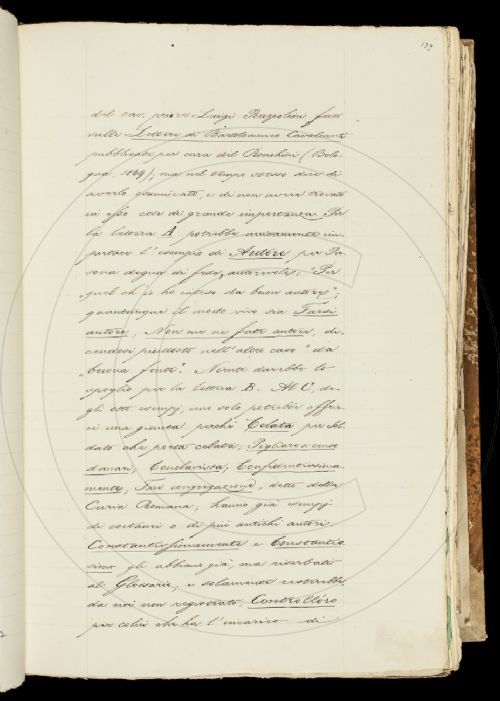 199
del cav. prior Luigi Razzolini fatti
sulle Lettere di Bartolommeo Cavalcanti
pubblicate per cura del Ronchini (Bolo-
gna, 1869); ma nel tempo stesso dice di
averlo esaminato, e di non avere trovato
in esso cose di grande importanza. Per
la lettera A potrebbe unicamente im-
portare l'esempio di Autore per Per-
sona degna di fede, autorevole: "Per
quel ch'io ho inteso da buon autore";
quantunque il modo vivo sia Farsi
autore, Non me ne fate autore, di-
cendosi piuttosto nell'altro caso "da
buona fonte". Niente darebbe lo
spoglio per la lettera B. Al C, de-
gli otto esempj, uno solo potrebbe offrir-
ci una giunta, perchè Celata per Sol-
dato che porta celata; Pigliare a censo
danari; Conclavista; Confidentissima-
mente; Fare congregazione, detto della
Curia Romana; hanno già esempj
di coetanei o di più antichi autori.
Constantissimamente e Constantis-
simo gli abbiamo già, ma riserbati
al Glossario; e solamente resterebbe,
da noi non registrato, Controllóro
per colui che ha l'incarico di